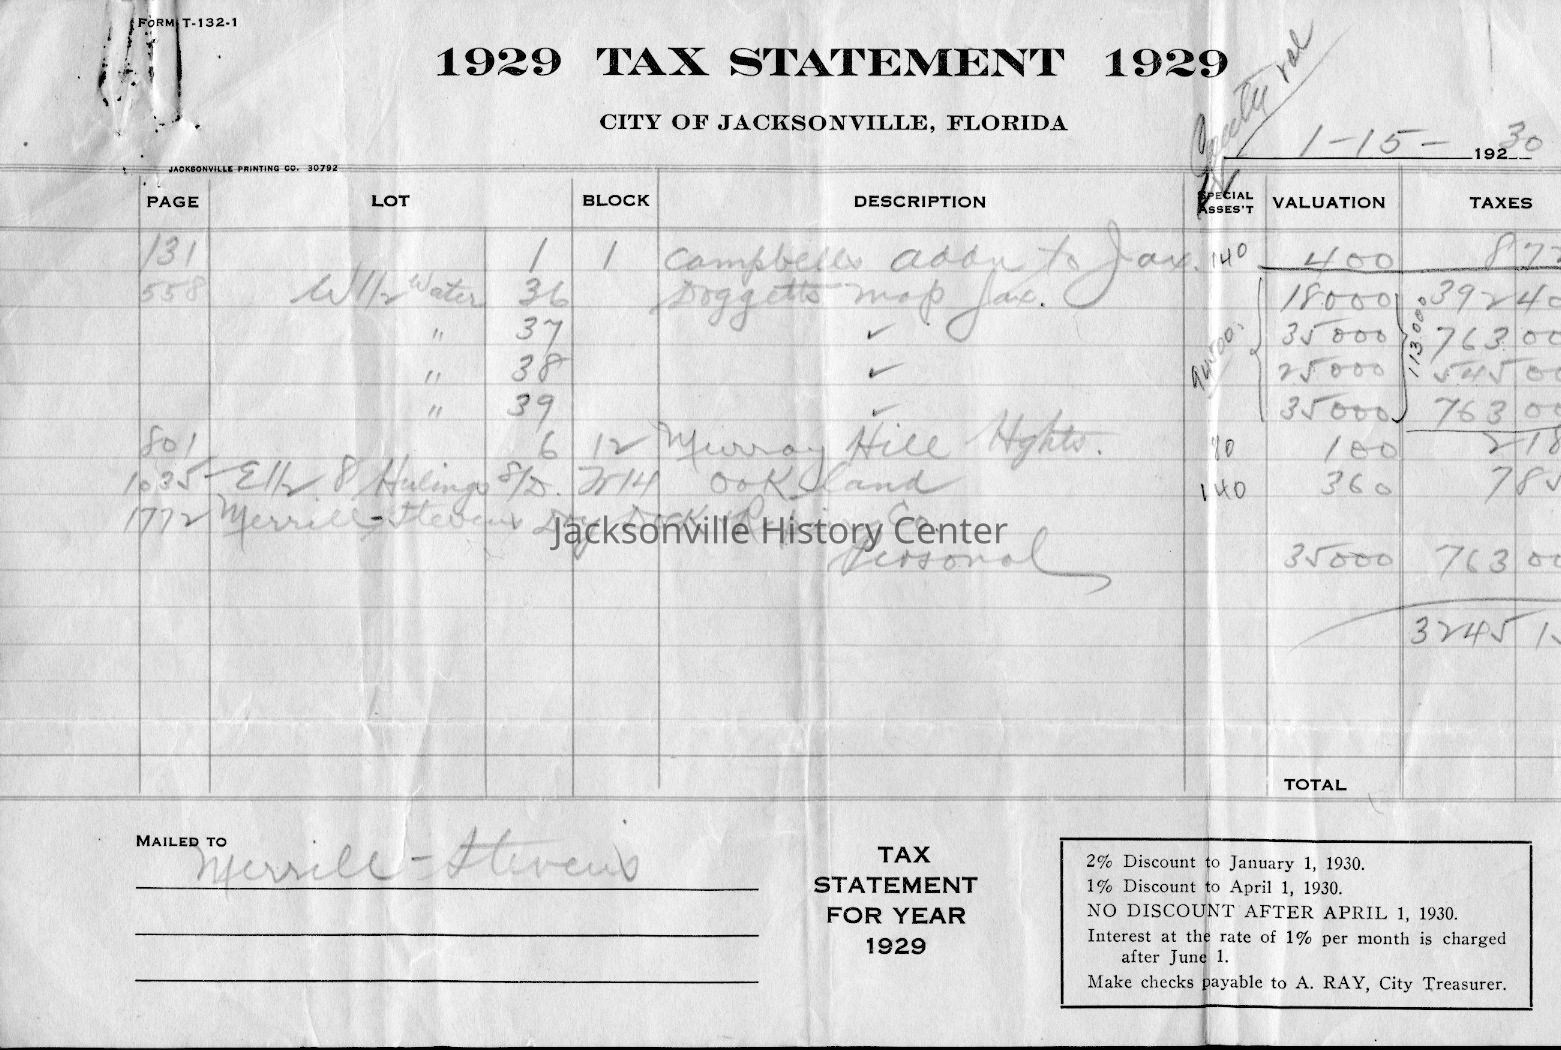 FORM T-132-1
1929 TAX STATEMENT 1929
CITY OF JACKSONVILLE, FLORIDA
1-15- 1930
JACKSONVILLE PRINTING CO. 30792
PAGE LOT BLOCK DESCRIPTION SPECIAL ASSES'T VALUATION TAXES
131 1 1 Campbells addn to Jax. 140 400 872
558 W 1/2 Water 36 Doggetts map Jax. 18000 39240
" 37 ✓ 35000 113000 763 00
" 38 ✓ 25000 545 00
" 39 ✓ 35000 763 00
801 6 12 Murray Hill Hghts. 70 100 218
1035 E 1/2 8 Hulings S/D. 14 Oakland 140 360 785
1772 Merrill-Stevens Dry Dock & Co
Personal 35000 763 00
3245 1
Jacksonville History Center
TOTAL
MAILED TO
Merrill-Stevens
TAX
STATEMENT
FOR YEAR
1929
2% Discount to January 1, 1930.
1% Discount to April 1, 1930.
NO DISCOUNT AFTER APRIL 1, 1930.
Interest at the rate of 1% per month is charged
after June 1.
Make checks payable to A. RAY, City Treasurer.